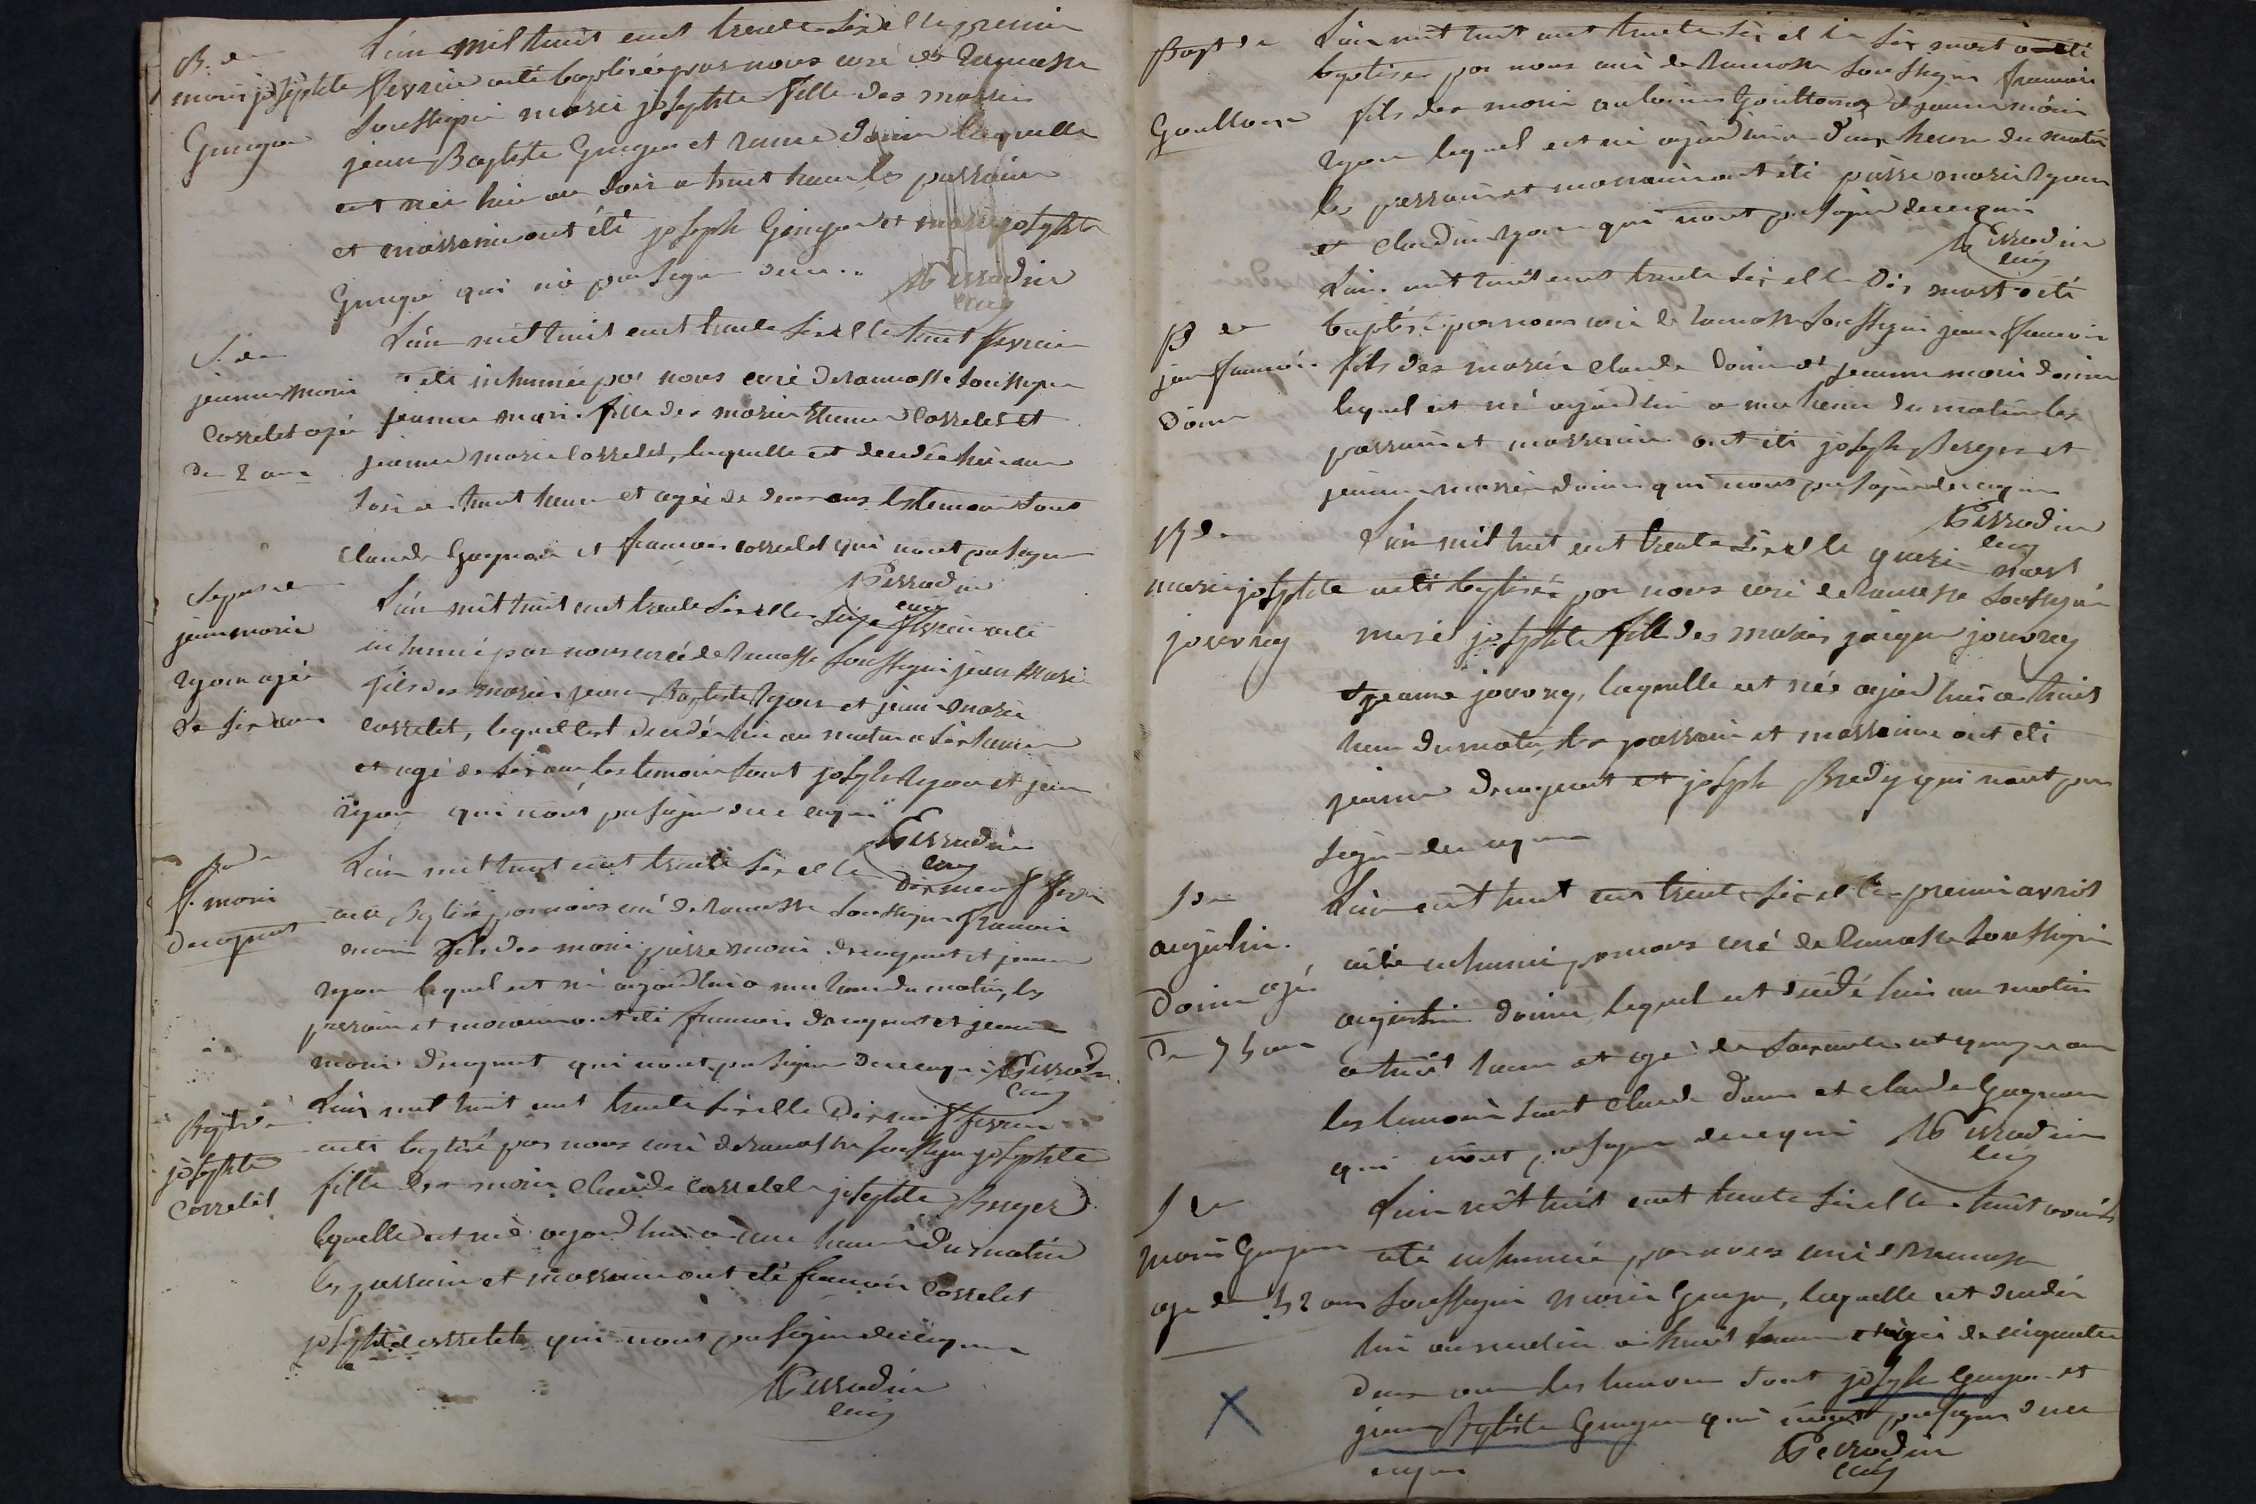 B. de
marie joséphte
Gringoz
L'an mil huit cent trente six et le premier
fevrier a été baptisée par nous curé de Ramasse
soussigné marie josephte fille des mariés
jean Baptiste Gringoz et
est née hier au soir a huit heures les parrain
et marraine ont été joseph Gingoz et marie josephte
Gringoz qui n'o pas signé
Perrodin
curé
S. de
jeanne Marie
Correlet agée
de 2 ans
L'an mil huit cent trente six et le huit fevrier
a été inhumée par nous curé de ramasse soussigné
jeanne marie fille des mariés Correlet et
jeanne marie Correlet, laquelle est decedée hier au
soir a huit heures et agée de deux ans les temoins sont
Claude Gagneux et francois correlet qui n'ont pas signé
Perrodin
curé
Sepre de
jean marie
ryon agé
de six ans
L'an mil huit cent trente six et le seize fevrier a été
inhumé par nous curé de Ramasse soussigné jean Marie
fils des mariés jean Baptiste Ryon et jeanne marie
correlet, lequel est decedé hier au matin a six heures
et agé de six ans les temoins sont joseph Ryon et jean
ryon qui n'ont pas signé
Perrodin
curé
B. de
f. marie
L'an mil huit cent trente six et le dix neuf fevrier
a été baptisé par nous curé de Ramasse soussigné francois
marie fils des mariés pierre marie et jeanne
ryon lequel est né aujourdhui a une heure du matin, les
parrain et marraine ont été francois et jeanne
marie qui n'ont pas signé Perrodin
curé
Bapt de
josephte
Correlet
L'an mil huit cent trente six et le dix neuf fevrier
a été baptisé par nous curé de ramasse soussigné josephte
fille des mariés Claude Correlet josephte Berger
laquelle est née aujourdhui a une heure du matin
les parrain et marraine ont été francois Correlet
josephte correlet qui n'ont pas signé
Perrodin
curé
Bapt de
L'an mil huit cent trente six et le six mars a été
baptisé par nous curé de Ramasse soussigné francois
fils des mariés et jeanne marie
ryon lequel est né aujourdhui a heures du matin
les parrain et marraine ont été pierre marie Ryon
et Claudine ryon qui n'ont pas signé
Perrodin
curé
B de
jean francois
Doine
L'an mil huit cent trente six et le dix mars a été
baptisé par nous curé de Ramasse soussigné jean francois
fils des mariés Claude Doine et jeanne marie doine
lequel est né aujourdhui a une heure du matin les
parrain et marraine ont été joseph Berger et
jeanne marie doine qui n'ont pas signé
Perrodin
curé
B de
marie josephte
jouvrey
L'an mil huit cent trente six et le quinze mars
a été baptisée par nous curé de Ramasse soussigné
marie josephte fille des mariés jacques jouvrey
et jeanne jouvrey, laquelle est née aujourdhui a huit
heures du matin, les parrain et marraine ont été
jeanne et joseph Bredy qui n'ont pas
signé
S de
augustin
Doine agé
de 75 ans
L'an mil huit cent trente six et le premier avril
a été inhumé par nous curé de Ramasse soussigné
augustin doine, lequel est decedé hier au matin
a huit heures et agé de soixante et quinze ans
les temoins sont Claude Doine et Claude Gagneux
qui n'ont pas signé Perrodin
curé
S de
marie Gringoz
agée de 52 ans
L'an mil huit cent trente six et le huit avril
a été inhumée par nous curé de Ramasse
soussigné marie Gringoz, laquelle est decedée
hier au matin a huit heures et agée de cinquante
deux ans les temoins sont joseph Gringoz et
jean Baptiste Gringoz qui n'ont pas signé
Perrodin
curé